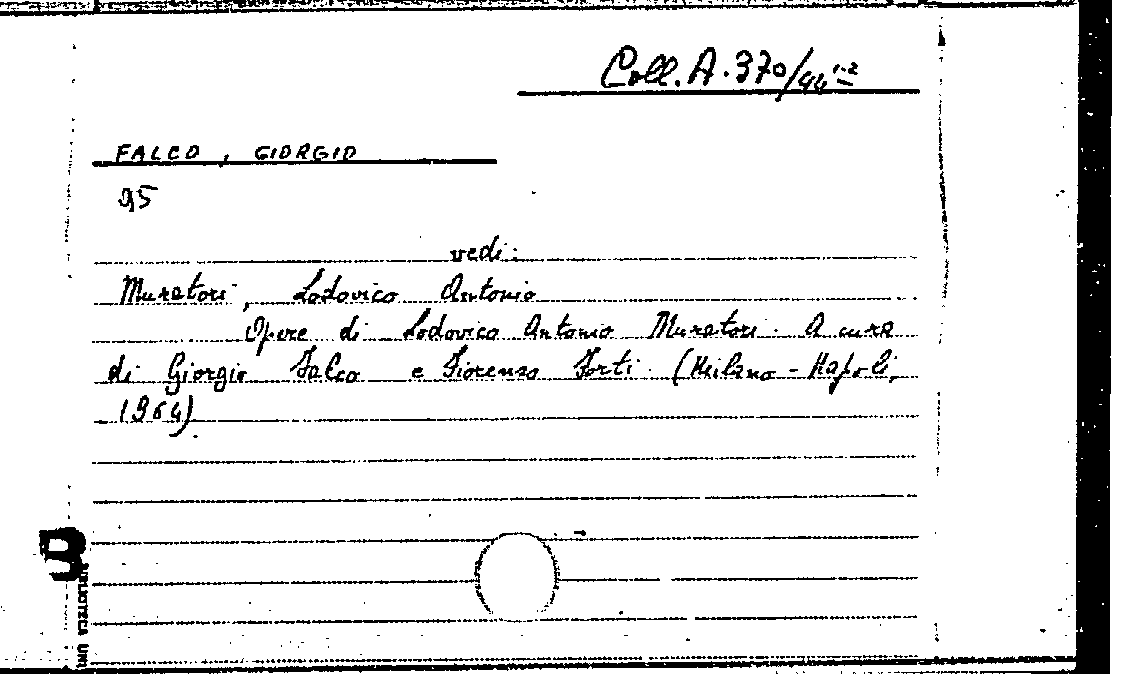 Coll. A. 370/44 1-2
FALCO, GIORGIO
95
vedi:
Muratori, Lodovico Antonio
Opere di Lodovico Antonio Muratori. A cura
di Giorgio Falco e Fiorenzo Forti. (Milano - Napoli,
1964).
BIBLIOTECA UNI